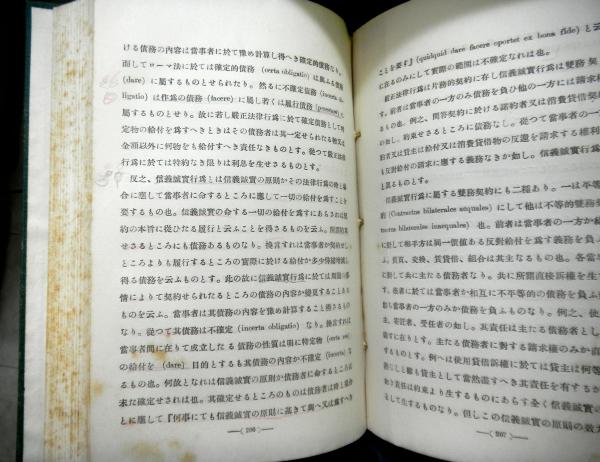 ける債務の內容は當事者に於て豫め計算し得へき確定的債務なり。
而してローマ法に於ては確定的債務 (certa obligatio) は與ふる債務
(dare) に屬するものとせられたり。然るに不確定債務 (incerta ob-
ligatio) は作爲の債務 (facere) に屬し若くは履行債務
屬するものとせり。故に若し嚴正法律行爲に於て確定債務として特
定物の給付を爲すへきときはその債務者は其一定せられたる物又は
金額以外に何物をも給付をすへき責任なきものとす。從つて嚴正法律
行爲に於ては特約なき限りは利息を生せさるものとす。
反之、信義誠實行爲とは信義誠實の原則かその法律行爲の時と場
合に應して當事者に命するところに應して一切の給付を爲すことを
要するもの也。信義誠實の命する一切の給付を爲すにあらされは契
約の本旨に從ひたる履行と云ふことを得さるものを云ふ。所謂其爲
さるところにも債務あるものなり。換言すれは當事者か契約せし
ところよりも履行するところの實際に於ける給付か多少
得る債務を云ふものとす。此の故に信義誠實行爲に於ては周圍の事
情によりて契約せられたるところの債務の內容か變見することある
ものを云ふ。當事者は其債務の內容を豫め計算すること得さるもの
なり。從つて其債務は不確定 (incerta obligatio) なり。換言すれは
當事者間に在りて成立したる債務の性質は假に特定物 (certa res)
の給付を (dare) 目的とするも其債務の內容か不確定 (incerta) な
るもの也。何故となれは信義誠實の原則か債務者に命するところは
未た確定せされは也。其確定せるところのものは債務者は時と場合
とに應して『何事にても信義誠實の原則に基きて與へ又は爲すへき
206
ことを要す』(quidquid dare facere oportet ex bona fide) と云
に在るのみにして實際の範圍は不確定なれは也。
嚴正法律行爲は片務的契約に存し信義誠實行爲は雙務契
す。前者は當事者の一方のみ債務を負ひ他の一方には請求
るもの也。例之、問答契約に於ける諾約者又は消費貸借契
の如し、約束せさるところに債務なし。從つて當事者の
者又は貸主は給付又は消費貸借物の反還を請求する權利
も反對給付の請求に應する義務なきか如し。信義誠實行爲
も異るものとす。
信義誠實行爲に屬する雙務契約にも二種あり。一は平等
的 (Contractus bilaterales aequales) にして他は不平等的雙務
(Contractus bilaterales inaequales) 也。前者は當事者の一方か給
に對して相手方は同一價値ある反對給付を爲す義務を負ふ
ふ。賣買、交換、賃貸借、組合は其主なるもの也。各當
に對して共に主たる債務者なり。共に所謂直接訴權を生
す。後者に於ては當事者か相互に不平等的債務を負ふ
り當事者の一方のみか債務を負ふものなり。例之、使
主、寄託者、受任者の如し。其責任は主たる責任者とし
なり。主たる債務者に對する請求權のみか直
するものとす。例へは使用貸借訴權に於ては貸主は何等
務なしと雖も貸主として當然盡すへき其責任を有するか
り責任は約束より生するものにあらす全く信義誠實の
生するものなり。但しこの信義誠實の原則の效力
207